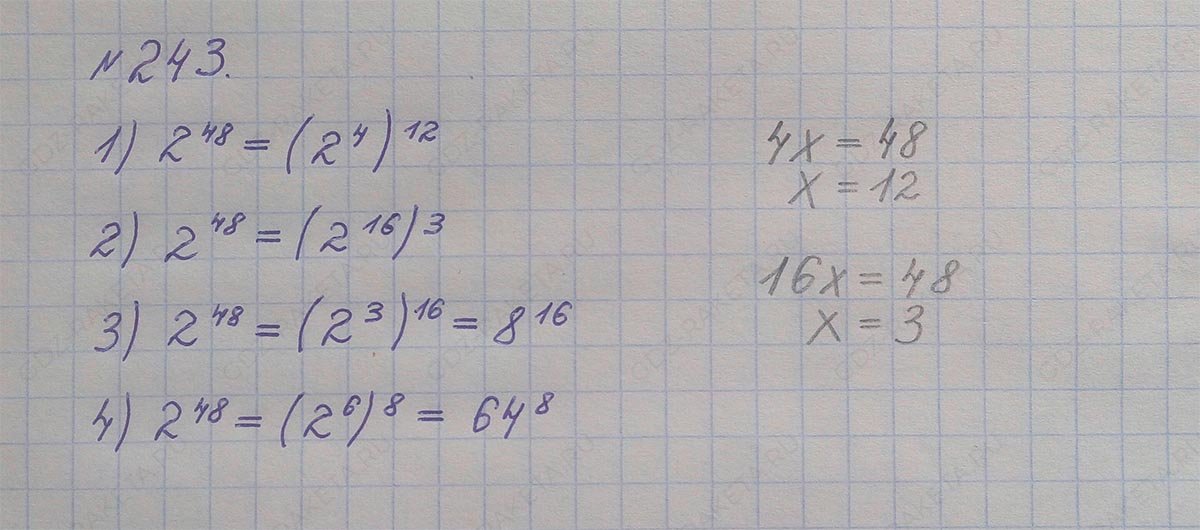 № 243.
1) 2^48 = (2^4)^12
4x = 48
x = 12
2) 2^48 = (2^16)^3
16x = 48
x = 3
3) 2^48 = (2^3)^16 = 8^16
4) 2^48 = (2^6)^8 = 64^8
GDZ-RAKETA.RU